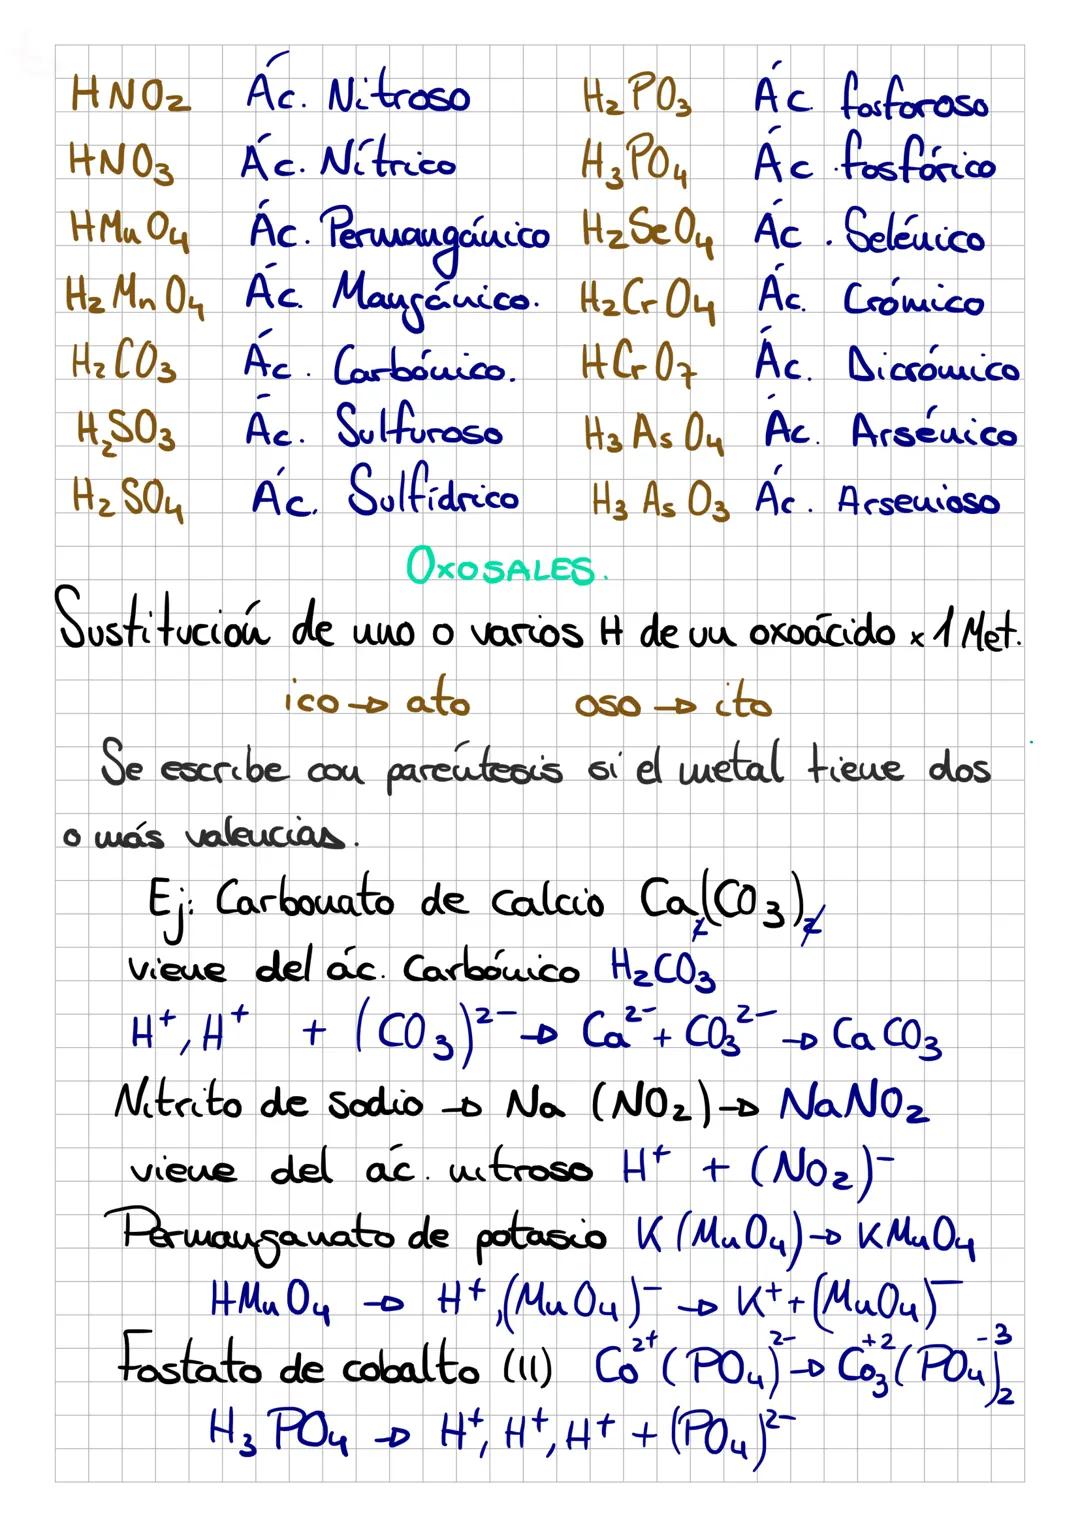 HNO2 Ác. Nitroso H2PO3 Ác fosforoso
HNO3 Ác. Nítrico H3PO4 Ác. fosfórico
HMnO4 Ác. Permangánico H2SeO4 Ác. Selénico
H2MnO4 Ác. Mangánico. H2CrO4 Ác. Crómico
H2CO3 Ác. Carbónico. HCrO7 Ác. Dicrómico
H2SO3 Ác. Sulfuroso H3AsO4 Ác. Arsénico
H2SO4 Ác. Sulfídrico H3AsO3 Ác. Arsenioso
OXOSALES.
Sustitución de uno o varios H de un oxoácido x 1 Met.
ico → ato oso → ito
Se escribe con paréntesis si el metal tiene dos
o más valencias.
Ej: Carbonato de calcio Ca2(CO3)2
viene del ác. Carbónico H2CO3
H+, H+ + (CO3)2- → Ca2- + CO32- → CaCO3
Nitrito de sodio → Na (NO2) → NaNO2
viene del ác. nitroso H+ + (NO2)-
Permanganato de potasio K(MnO4) → KMnO4
HMnO4 → H+, (MnO4)- → K+ + (MnO4)-
Fosfato de cobalto (II) Co2+ (PO4)2- → Co3+2 (PO4-3)2
H3PO4 → H+, H+, H+ + (PO4)2-